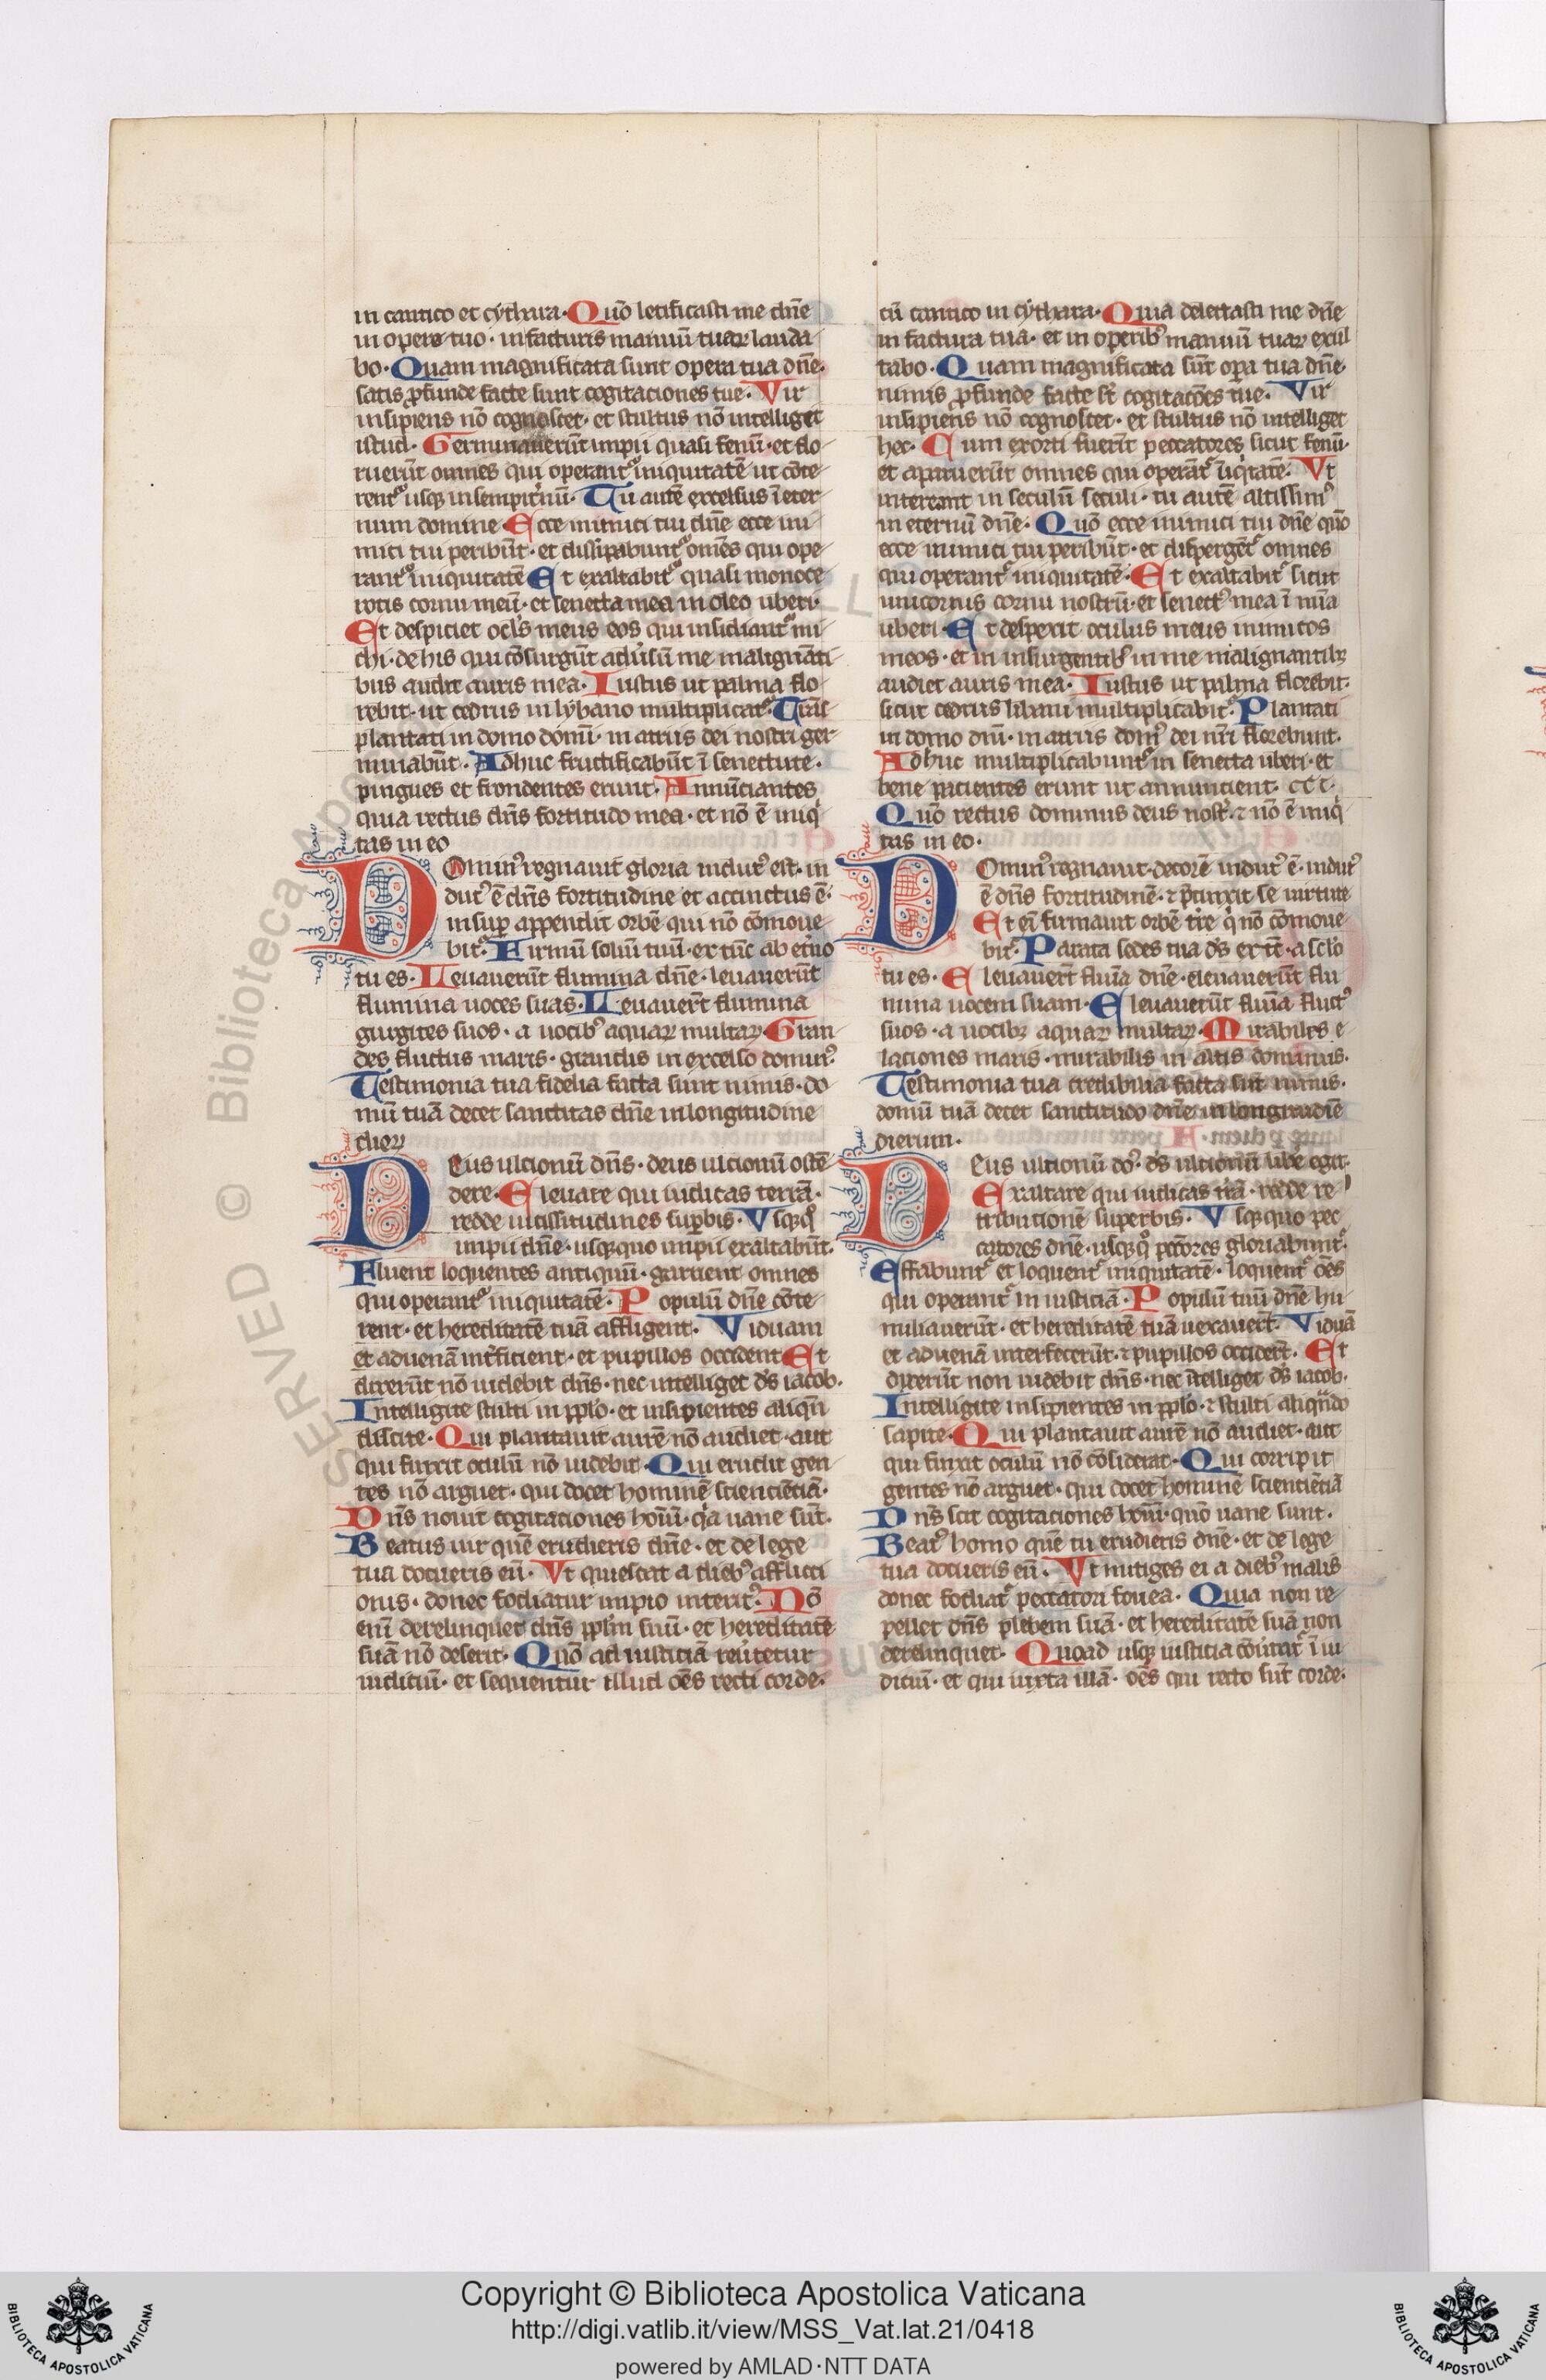 in cantico et cythara. Quō letificasti me dn̄e
in opere tuo. in facturis manuū tuaꝝ lauda
bo. Quam magnificata sunt opera tua dn̄e.
satis ꝓfunde facte sunt cogitaciones tue. Vir
insipiens nō cognoscet. et stultus nō intelliget
istud. Germinauerūt impii quasi fenū. et flo
ruerūt omnes qui operant᷑ iniquitatē ut cōte
rent᷑ usqꝫ in sempit̉nū. Tu autē excelsus ī eter
num domine. Ecce inimici tui dn̄e ecce ini
mici tui peribūt. et dissipabunt᷑ omēs qui ope
rant᷑ iniquitatē Et exaltabit᷑ quasi monoce
rotis cornu meū. et senecta mea in oleo uberi.
Et despiciet ocl̄s meus eos qui insidiant᷑ mi
chi. de his qui cōsurgūt adūsū me malignāti
bus audit auris mea. Iustus ut palma flo
rebit. ut cedrus in lybano multiplicat᷑. Trās
plantati in domo domī. in atriis dei nostri ger
minabūt. Adhuc fructificabūt ī senectute.
pingues et frondentes erunt. Annūciantes
quia rectus dn̄s fortitudo mea. et nō ē iniq̄
tas in eo
Domin᷒ regnauit gloria indut᷒ est. in
dut᷒ ē dn̄s fortitudine et accinctus ē.
insuꝑ appendit orbē qui nō cōmoue
bit᷑. Firmū soliū tuū. ex tūc ab et̉no
tu es. Leuauerūt flumina dn̄e. leuauerūt
flumina uoces suas. Leuauer̄t flumina
gurgites suos. a uocib᷒ aquaꝝ multaꝝ. Gran
des fluctus maris. grandis in excelso domin᷒.
Testimonia tua fidelia facta sunt nimis. do
mū tuā decet sanctitas dn̄e in longitudine
dieꝝ
Deus ulcionū dn̄s. deus ulcionū ostē
dere. Eleuare qui iudicas terrā.
redde uicissitudines suꝑbis. Vsqꝫq̊
impii dn̄e. usqꝫquo impii exaltabūt.
Fluent loquentes antiquū. garrient omnes
qui operant᷑ iniquitatē. Populū dn̄e cōte
rent. et hereditatē tuā affligent. Viduam
et aduenā int̉ficient. et pupillos occident Et
dixerūt nō uidebit dn̄s. nec intelliget dс̄ iacob.
Intelligite stulti in ppl̄o. et insipientes aliqn̄
discite. Qui plantauit aurē nō audiet. aut
qui finxit oculū nō uidebit. Qui erudit gen
tes nō arguet. qui docet hominē scienciētiā.
Dn̄s nouit cogitaciones hoīm. q̄a uane sūt.
Beatus uir quē erudieris dn̄e. et de lege
tua docueris eū. Vt quiescat a dieb᷒ afflicti
onis. donec fodiatur impio interit᷒. Nō
enī derelinquet dn̄s ppl̄m suū. et hereditatē
suā nō deserit. Quō ad iusticiā reūtetur
iudiciū. et sequentur illud oēs recti corde.
cū cantico in cythara. Quia delectasti me dn̄e
in factura tua. et in operib᷒ manuū tuaꝝ exul
tabo. Quam magnificata sūt oꝑa tua dn̄e.
nimis ꝓfunde facte sт̄ cogitacōes tue. Vir
insipiens nō cognoscet. et stultus nō intelliget
hec. Cum exorti fuerīt peccatores sicut fenū.
et aparuerūt omnes qui operāt᷑ īiq̄tatē. Vt
intereant in seculū seculi. tu autē altissim᷒
in eternū dn̄e. Quō ecce inimici tui dn̄e quō
ecce inimici tui peribūt. et dispergēt᷑ omnes
qui operant᷑ iniquitatē. Et exaltabit᷑ sicut
unicornis cornu nostrū. et senect᷒ mea ī mīa
uberi. Et despexit oculus meus inimicos
meos. et in insurgentib᷒ in me malignantibꝫ
audiet auris mea. Iustus ut palma florebit.
sicut cedrus libani multiplicabit᷑. Plantati
in domo dn̄i. in atriis dom᷒ dei nr̄i florebunt.
Adhuc multiplicabunt᷑ in senecta uberi. et
bene pacientes erunt ut annuncient. ccc.
Quō rectus dominus deus nost̉. ⁊ nō ē iniq̄
tas in eo.
Domin᷒ regnauit. decorē indut᷒ ē. indut᷒
ē dn̄s fortitudinē. ⁊ p̄cinxit se uirtute
Et eī firmauit orbē tr̄e q̄ nō cōmoue
bit᷑. Parata sedes tua dс̄ ex tc̄. a scl̄o
tu es. Eleuauer̄t flumīa dn̄e. eleuauerūt flu
mina uocem suam. Eleuauerūt flumīa fluct᷒
suos. a uocibꝫ aquaꝝ multaꝝ. Mirabiles e
laciones maris. mirabilis in altis dominus.
Testimonia tua credibilia facta sūt nimis.
domū tuā decet sanctitudo dn̄e in longitudīe
dierum.
Deus ultionū do᷒. dс̄ ultionū libe egit.
Exaltare qui iudicas tr̄ā. redde re
tributionē superbis. Vsqꝫquo pec
catores dn̄e. usqꝫq̊ pctōres gloriabunt᷑.
Effabunt᷑ et loquent᷑ iniquitatē. loquent᷑ oēs
qui operant᷑ in iusticiā. Populū tuū dn̄e hu
miliauerūt. et hereditatē tuā uexauer̄t. Viduā
et aduenā interfecerūt. ⁊ pupillos occider̄t. Et
dixerūt non uidebit dn̄s. nec ītelliget dс̄ iacob.
Intelligite insipientes in ppl̄o. ⁊ stulti aliqn̄do
sapite. Qui plantauit aurē nō audiet. aut
qui finxit oculū nō cōsiderat. Qui corripit
gentes nō arguet. qui docet hominē scientiētiā
Dn̄s scit cogitaciones hoīm. quō uane sunt.
Beat᷒ homo quē tu erudieris dn̄e. et de lege
tua docueris eū. Vt mitiges ei a dieb᷒ malis
donec fodiat᷑ peccatori fouea. Quia non re
pellet dn̄s plebem suā. et hereditatē suā non
derelinquet. Quoad usqꝫ iusticia cōūtat᷑ ī iu
diciū. et qui iuxta illā. oēs qui recto sūt corde.
Copyright © Biblioteca Apostolica Vaticana
http://digi.vatlib.it/view/MSS_Vat.lat.21/0418
powered by AMLAD·NTT DATA
BIBLIOTECA APOSTOLICA VATICANA
BIBLIOTECA APOSTOLICA VATICANA